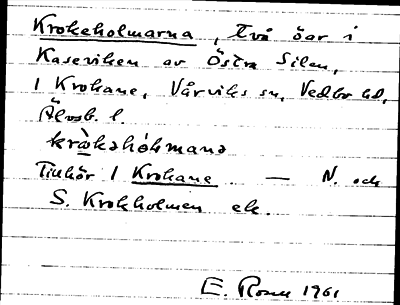 Krokeholmarna, två öar i
Kaseviken av Östra Silen,
1 Krokane, Vårviks sn, Vedbo hd,
Älvsb. l.
krò̱kəhòhmanə
Tillhör 1 Krokane — N. och
S. Krokholmen ek.
E. 1961